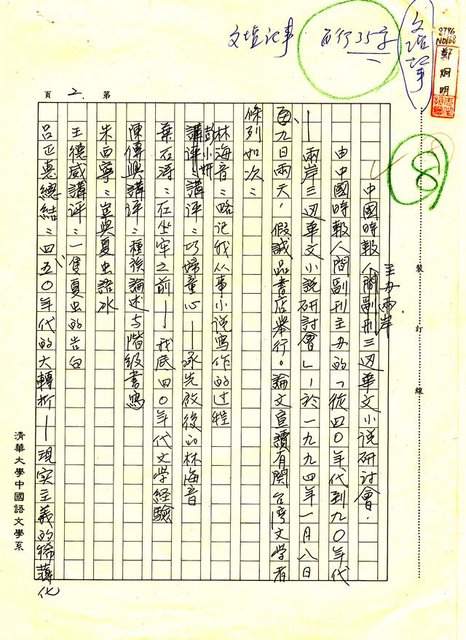 文壇記事
每行35字
文壇記事
鄭炯明
8
第 2 頁
裝訂線
主办兩岸
中國時報人間副刊三边華文小说研討會.
由中國時報人間副刊主办的「從四〇年代到九〇年代
——兩岸三边華文小说研討會」,於一九九四年一月八日
、九日两天,假誠品書店舉行。論文宣讀有関台灣文学者
條列如次:
林海音:略记我从事小说寫作的过程
彭小妍
講評:巧婦童心——承先啟後的林海音
葉石涛:在坐牢之前——我底四〇年代文学经驗
陳傳興講評:種族論述与階級書寫
朱西甯:豈與夏虫語冰
王德威講評:一隻夏虫的告白
呂正惠總結:四、五〇年代的大轉折——現实主義的
清華大學中國語文學系